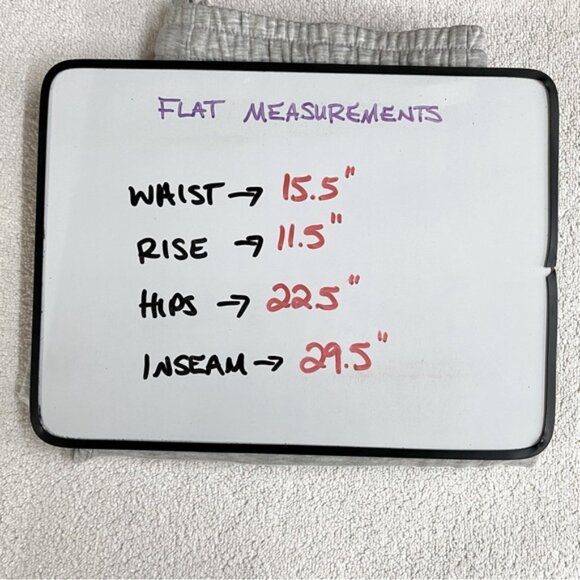 FLAT MEASUREMENTS
WAIST → 15.5"
RISE → 11.5"
HIPS → 22.5"
INSEAM → 29.5"